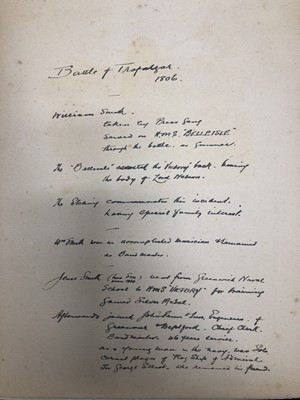 Battle of Trafalgar.
1806.
William Smith.
taken by Press Gang
served on H.M.S "BELLEISLE"
through the battle. as Gunner.
The "Belleisle" escorted the "Victory" back. bearing
the body of Lord Nelson.
The Etching commemorates this incident.
having special family interest.
Wm Smith was an accomplished musician & became
as Band master.
Jesse Smith went from Greenwich Naval
School to H.M.S "VICTORY" for training
Gained Silver Medal.
Afterwards joined John Penn & Sons Engineers. of
Greenwich & Deptford. Chief Clerk.
Bandmaster. 46 years service.
as a young man in the navy, was Solo
cornet player of Flag Ship of Admiral
Sir George who remained his friend.